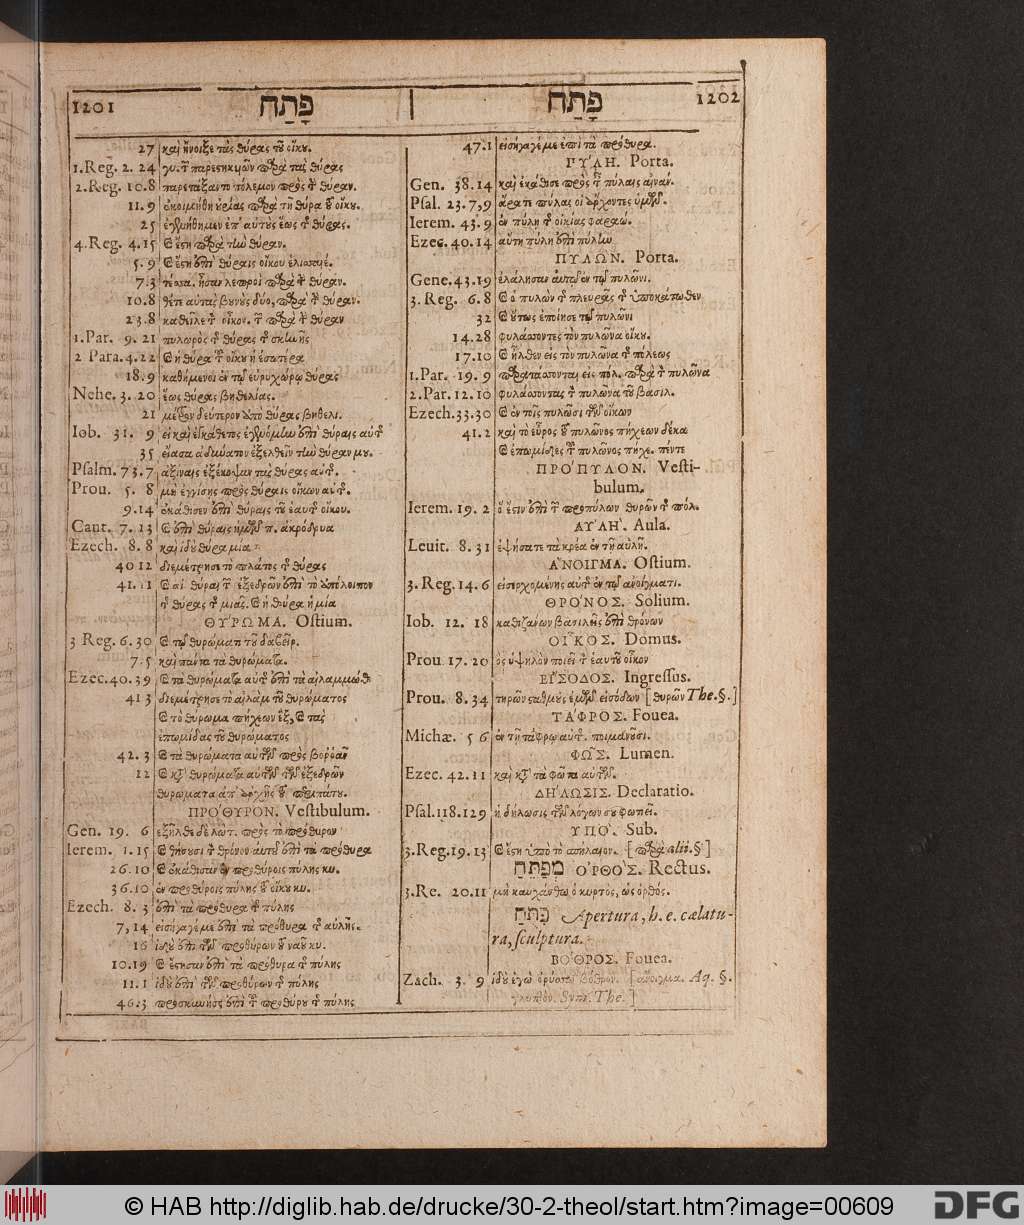 1201 פָּתַח
פָּתַח 1202
27 καὶ ἤνοιξε τὰς θύρας τοῦ οἴκου.
1.Reg. 2. 24 τὰς θύρας
2.Reg. 10.8 παρετάξαντο πόλεμον πρὸς θύραν.
11. 9 ἐκοιμήθη οὐρίας παρὰ τῇ θύρᾳ τοῦ οἴκου.
25 ἐπ' αὐτοὺς ἕως τῆς θύρας.
4. Reg. 4.15 καὶ ἔστη παρὰ τὴν θύραν.
5. 9 καὶ ἔστη ἐπὶ θύραις οἴκου ἐλισσαιέ.
7.3 ἦσαν λεπροὶ παρὰ τὴν θύραν.
10.8 θέτε αὐτὰς βουνοὺς δύο, παρὰ τὴν θύραν.
23.8 καθεῖλε τὸν οἶκον. θύραν
1.Par. 9. 21 πυλωρὸς τῆς θύρας τῆς σκηνῆς
2 Para. 4.22 καὶ ἡ θύρα τοῦ οἴκου ἡ ἐσωτέρα
18.9 καθήμενοι ἐν τῷ εὐρυχώρῳ θύρας
Nehe. 3. 20 ἕως θύρας βηθελίας.
21 μέτρον δεύτερον ἀπὸ θύρας βηθελι.
Iob. 31. 9 εἰ καὶ ἐγκάθετος ἐγενόμην ἐπὶ θύραις αὐτῆς
35 ἐξελθεῖν τὴν θύραν μου.
Psalm. 73.7 ἀξίναις ἐξέκοψαν τὰς θύρας αὐτῆς.
Prou. 5. 8 μὴ ἐγγίσῃς πρὸς θύραις οἴκων αὐτῆς.
9.14 ἐκάθισεν ἐπὶ θύραις τοῦ ἑαυτῆς οἴκου.
Cant. 7. 13 καὶ ἐπὶ θύραις ἡμῶν π. ἀκρόδρυα
Ezech. 8. 8 καὶ ἰδοὺ θύρα μία
40 12 διεμέτρησε τὸ πλάτος τῆς θύρας
41. 11 καὶ αἱ θύραι τῶν ἐξεδρῶν ἐπὶ τὸ ὑπόλοιπον
τῆς θύρας τῆς μιᾶς. καὶ ἡ θύρα ἡ μία
ΘΥΡΩΜΑ. Ostium.
3 Reg. 6. 30 καὶ τῷ θυρώματι τοῦ δαβεὶρ.
7.5 καὶ πάντα τὰ θυρώματα.
Ezec. 40. 39 καὶ τὰ θυρώματα αὐτῆς ἐπὶ τὰ αἰλαμμωθ
41 3 διεμέτρησε τὸ αἰλὰμ τοῦ θυρώματος
καὶ τὸ θύρωμα πήχεων ἓξ, καὶ τὰς
ἐπωμίδας τοῦ θυρώματος
42. 3 καὶ τὰ θυρώματα αὐτῶν πρὸς βοῤῥᾶν
12 καὶ κατὰ θυρώματα αὐτῶν τῶν ἐξεδρῶν
θυρώματα ἀπ' ἀρχῆς τοῦ περιπάτου.
ΠΡΟΘΥΡΟΝ. Vestibulum.
Gen. 19. 6 ἐξῆλθε δὲ λώτ. πρὸς τὸ πρόθυρον
Ierem. 1. 15 καὶ θήσουσι τὸν θρόνον αὐτοῦ ἐπὶ τὰ πρόθυρα
26. 10 καὶ ἐκάθισαν ἐν προθύροις πύλης κυ.
36. 10 ἐν προθύροις πύλης τοῦ οἴκου κυ.
Ezech. 8. 3 ἐπὶ τὰ πρόθυρα τῆς πύλης
7, 14 εἰσήγαγέ με ἐπὶ τὰ πρόθυρα τῆς αὐλῆς.
16 ἰδοὺ ἐπὶ τῶν προθύρων τοῦ ναοῦ κυ.
10.19 καὶ ἔστησαν ἐπὶ τὰ πρόθυρα τῆς πύλης
11.1 ἰδοὺ ἐπὶ τῶν προθύρων τῆς πύλης
46.3 προσκυνήσει ἐπὶ προθύρου τῆς πύλης
47.1 εἰσήγαγέ με ἐπὶ τὰ πρόθυρα.
ΠΥΛΗ. Porta.
Gen. 38.14 καὶ ἐκάθισε πρὸς ταῖς πύλαις αἰνάν.
Psal. 23.7,9 ἄρατε πύλας οἱ ἄρχοντες ὑμῶν.
Ierem. 43. 9 ἐν πύλῃ τῆς οἰκίας φαραώ.
Ezec. 40. 14 αὕτη πύλη ἐπὶ πύλην
ΠΥΛΩΝ. Porta.
Gene. 43.19 ἐλάλησαν αὐτῷ ἐν τῷ πυλῶνι.
3. Reg. 6.8 καὶ ὁ πυλὼν τῆς πλευρᾶς τῆς ὑποκάτωθεν
32 καὶ οὕτως ἐποίησε τῷ πυλῶνι
14.28 φυλάσσοντες τὸν πυλῶνα οἴκου.
17.10 καὶ ἦλθεν εἰς τὸν πυλῶνα τῆς πόλεως
1.Par. 19. 9 παρατάσσονται εἰς πολ. παρὰ τὸν πυλῶνα
2.Par. 12. 10 φυλάσσοντας τὸν πυλῶνα τοῦ βασιλ.
Ezech. 33.30 καὶ ἐν τοῖς πυλῶσι τῶν οἴκων
41.2 καὶ τὸ εὖρος τοῦ πυλῶνος πήχεων δέκα
καὶ ἐπωμίδες τοῦ πυλῶνος πήχε. πέντε
ΠΡΟΠΥΛΟΝ. Vesti-
bulum.
Ierem. 19. 2 ὅ ἐστιν ἐπὶ τῶν προπύλων θυρῶν τῆς πόλ.
ΑΥΛΗ. Aula.
Leuit. 8. 31 ἑψήσατε τὰ κρέα ἐν τῇ αὐλῇ.
ΑΝΟΙΓΜΑ. Ostium.
3. Reg. 14. 6 εἰσερχομένης αὐτῆς ἐν τῷ ἀνοίγματι.
ΘΡΟΝΟΣ. Solium.
Iob. 12. 18 καθιζάνων βασιλεῖς ἐπὶ θρόνων
ΟΙΚΟΣ. Domus.
Prou. 17. 20 ὃς ὑψηλὸν ποιεῖ τὸν ἑαυτοῦ οἶκον
ΕΙΣΟΔΟΣ. Ingressus.
Prou. 8. 34 τηρῶν σταθμοὺς ἐμῶν εἰσόδων [θυρῶν The. §.]
ΤΑΦΡΟΣ. Fouea.
Michæ. 5 6 ἐν τῇ τάφρῳ αὐτῆς. ποιμανοῦσι.
ΦΩΣ. Lumen.
Ezec. 42. 11 καὶ κατὰ τὰ φῶτα αὐτῶν.
ΔΗΛΩΣΙΣ. Declaratio.
Psal. 118.129 ἡ δήλωσις τῶν λόγων σου φωτιεῖ.
ΥΠΟ. Sub.
3.Reg. 19. 13 καὶ ἔστη ὑπὸ τὸ σπήλαιον. [παρὰ alii. §]
מִפְתָּח ΟΡΘΟΣ. Rectus.
3. Re. 20.11 μὴ καυχάσθω ὁ κυρτὸς, ὡς ὀρθός.
פִּתֵּחַ Apertura, h. e. cælatu-
ra, sculptura.
ΒΟΘΡΟΣ. Fouea.
Zach. 3. 9 ἰδοὺ ἐγὼ ὀρύσσω βόθρον. [ἄνοιγμα. Aq. §.
Sym. The.]
© HAB http://diglib.hab.de/drucke/30-2-theol/start.htm?image=00609
DFG